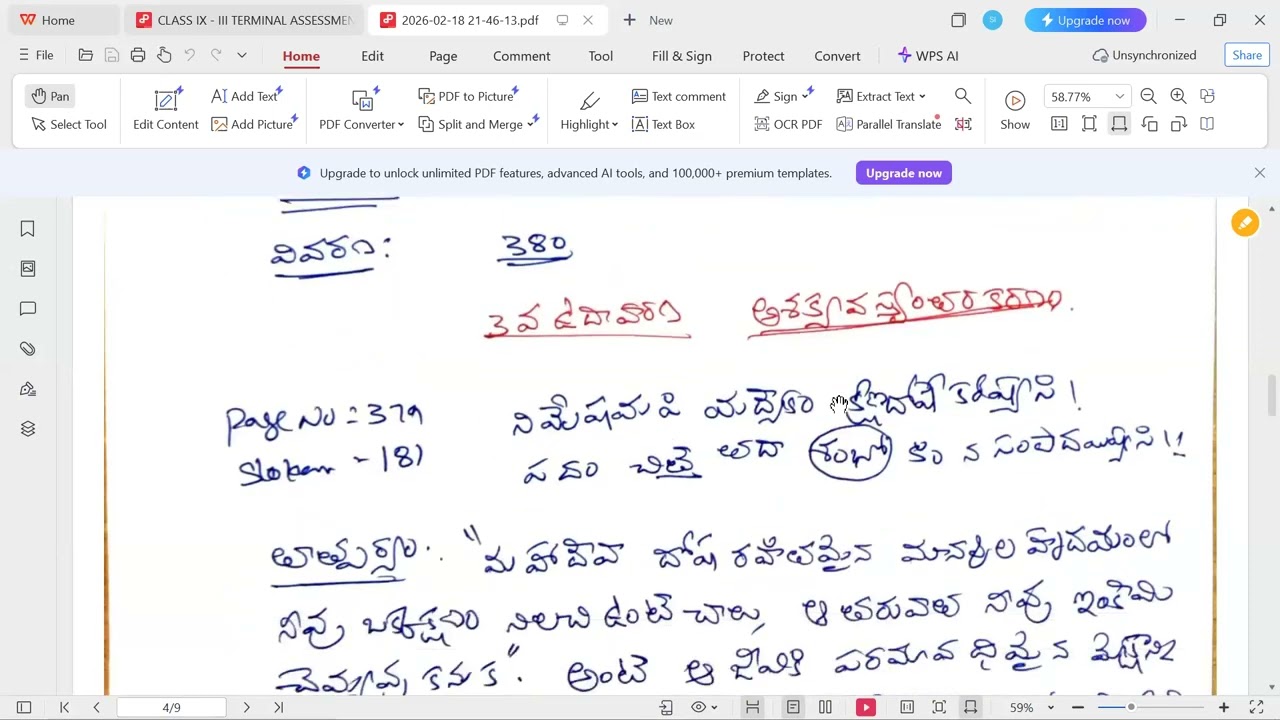 Home
CLASS IX - III TERMINAL ASSESSMEN
2026-02-18 21-46-13.pdf
New
Upgrade now
File
Home Edit Page Comment Tool Fill & Sign Protect Convert WPS AI
Unsynchronized
Share
Pan
Select Tool
Edit Content
Add Text
Add Picture
PDF Converter
PDF to Picture
Split and Merge
Highlight
Text comment
Text Box
Sign
OCR PDF
Extract Text
Parallel Translate
Show
58.77%
Upgrade to unlock unlimited PDF features, advanced AI tools, and 100,000+ premium templates.
Upgrade now
వివరణ: 380
3వ ఉదాహరణ
Page No = 379
నిమేషమపి
కరిష్యసి!
181
పదం చిత్తే తదా శంభో కిం న సంపాదయిష్యసి!!
తాత్పర్యం: "మహాదేవా దోష రహితమైన మానవుల హృదయంలో
నీవు ఒక్కక్షణం నిలచి ఉంటే చాలు, ఆ తరువాత నీవు ఇంకేమి
చెయ్యవు కనుక". అంటే ఆ జీవికి పరమావధియైన మోక్షాన్ని
4/9
59%